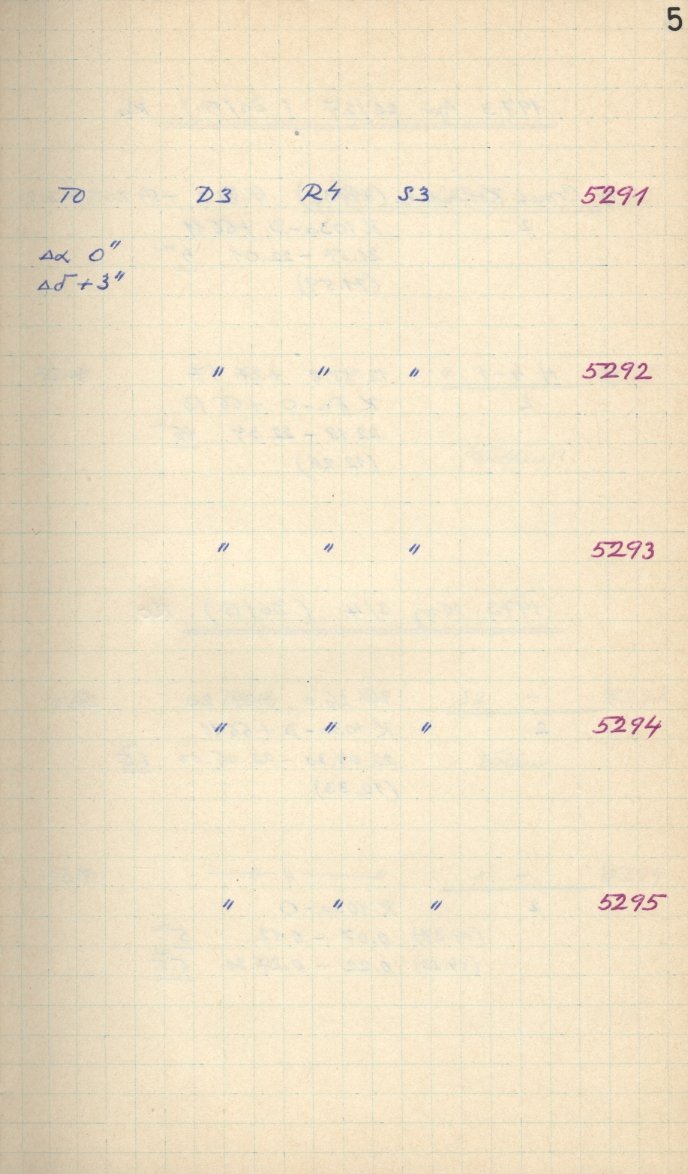 5
TO D3 R4 S3 5291
Δα 0"
Δδ +3"
" " " 5292
" " " 5293
" " " 5294
" " " 5295